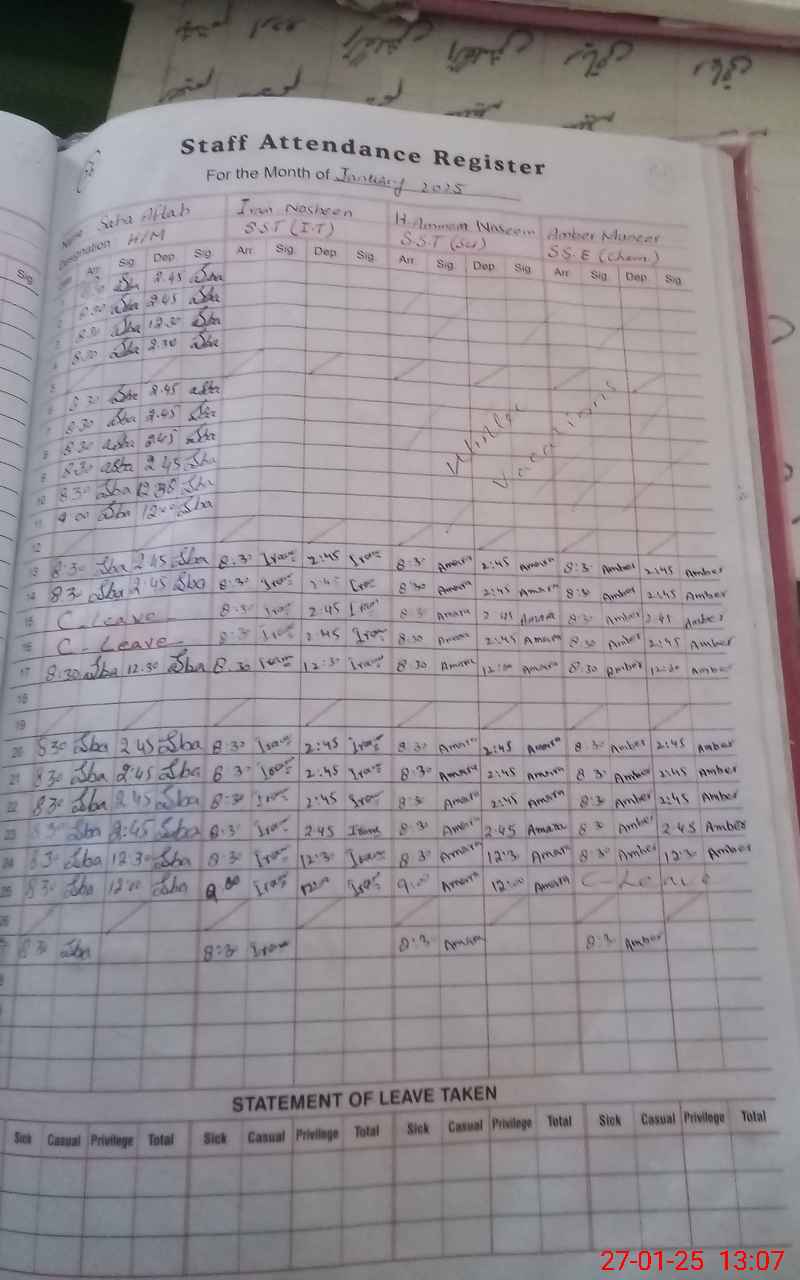 Staff Attendance Register
For the Month of January 2025
Name Saba Aftab Iram Nosheen H. Ammara Naseem Amber Muneer
Designation H/M S.S.T (I.T) S.S.T (Sci) S.S.E (Chem.)
Sig. Arr. Sig. Dep. Sig. Arr. Sig. Dep. Sig. Arr. Sig. Dep. Sig. Arr. Sig. Dep. Sig.
Sba 2.45 Sba
8.30 Sba 2.45 Sba
8.30 Sba 12.30 Sba
8.30 Sba 2.30 Sba
5
6 8.30 Sba 2.45 Sba
7 8.30 Sba 2.45 Sba
8 8.30 Sba 2.45 Sba
9 8.30 Sba 2.45 Sba
10 8.30 Sba 12.30 Sba
11 9.00 Sba 12.00 Sba
Winter
Vacations
12
13 8.30 Sba 2.45 Sba 8:30 Iram 2:45 Iram 8:30 Amara 2:45 Amara 8:30 Amber 2:45 Amber
14 8.30 Sba 2.45 Sba 8:30 Iram 2:45 Iram 8:30 Amara 2:45 Amara 8:30 Amber 2:45 Amber
15 C-Leave 8:30 Iram 2:45 Iram 8:30 Amara 2:45 Amara 8:30 Amber 2:45 Amber
16 C-Leave 8:30 Iram 2:45 Iram 8:30 Amara 2:45 Amara 8:30 Amber 2:45 Amber
17 8:30 Sba 12.30 Sba 8:30 Iram 12:30 Iram 8:30 Amara Amara 8:30 Amber Amber
18
19
20 8 30 Sba 2 45 Sba 8:30 Iram 2:45 Iram 8:30 Amara 2:45 Amara 8:30 Amber 2:45 Amber
21 8 30 Sba 2:45 Sba 8:30 Iram 2:45 Iram 8:30 Amara 2:45 Amara 8:30 Amber 2:45 Amber
22 8 30 Sba 2 45 Sba 8:30 Iram 2:45 Iram 8:30 Amara 2:45 Amara 8:30 Amber 2:45 Amber
23 8 30 Sba 2:45 Sba 8:30 Iram 2:45 Iram 8:30 Amara 2:45 Amara 8:30 Amber 2:45 Amber
24 8 30 Sba 12:30 Sba 8:30 Iram 12:30 Iram 8:30 Amara 12:30 Amara 8:30 Amber 12:30 Amber
25 8 30 Sba 12:00 Sba Iram 12:00 Iram 9:00 Amara 12:00 Amara C-Leave
26
8 30 Sba 8:30 Iram 8:30 Amara 8:30 Amber
STATEMENT OF LEAVE TAKEN
Sick Casual Privilege Total Sick Casual Privilege Total Sick Casual Privilege Total Sick Casual Privilege Total
27-01-25 13:07